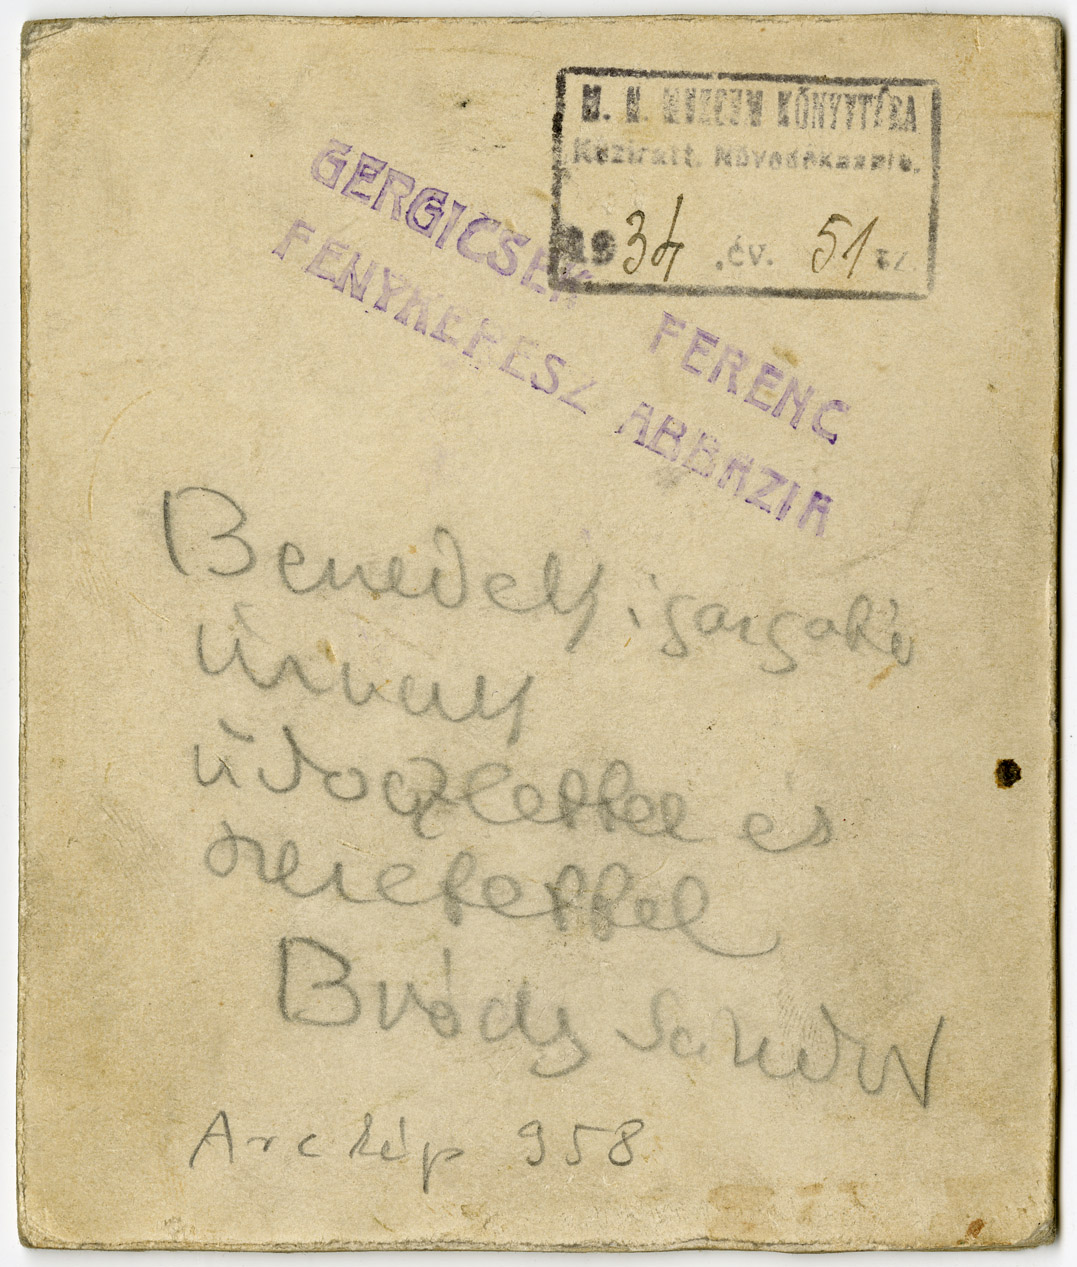 M. N. MUZEUM KÖNYVTÁRA
Kéziratt. Növedéknapló.
1934 .év. 51 sz.
GERGICSEK FERENC
FÉNYKÉPÉSZ ABBAZIA
Benedek igazgató
úrnak
üdvözlettel és
szeretettel
Bródy Sándor
Arckép 958